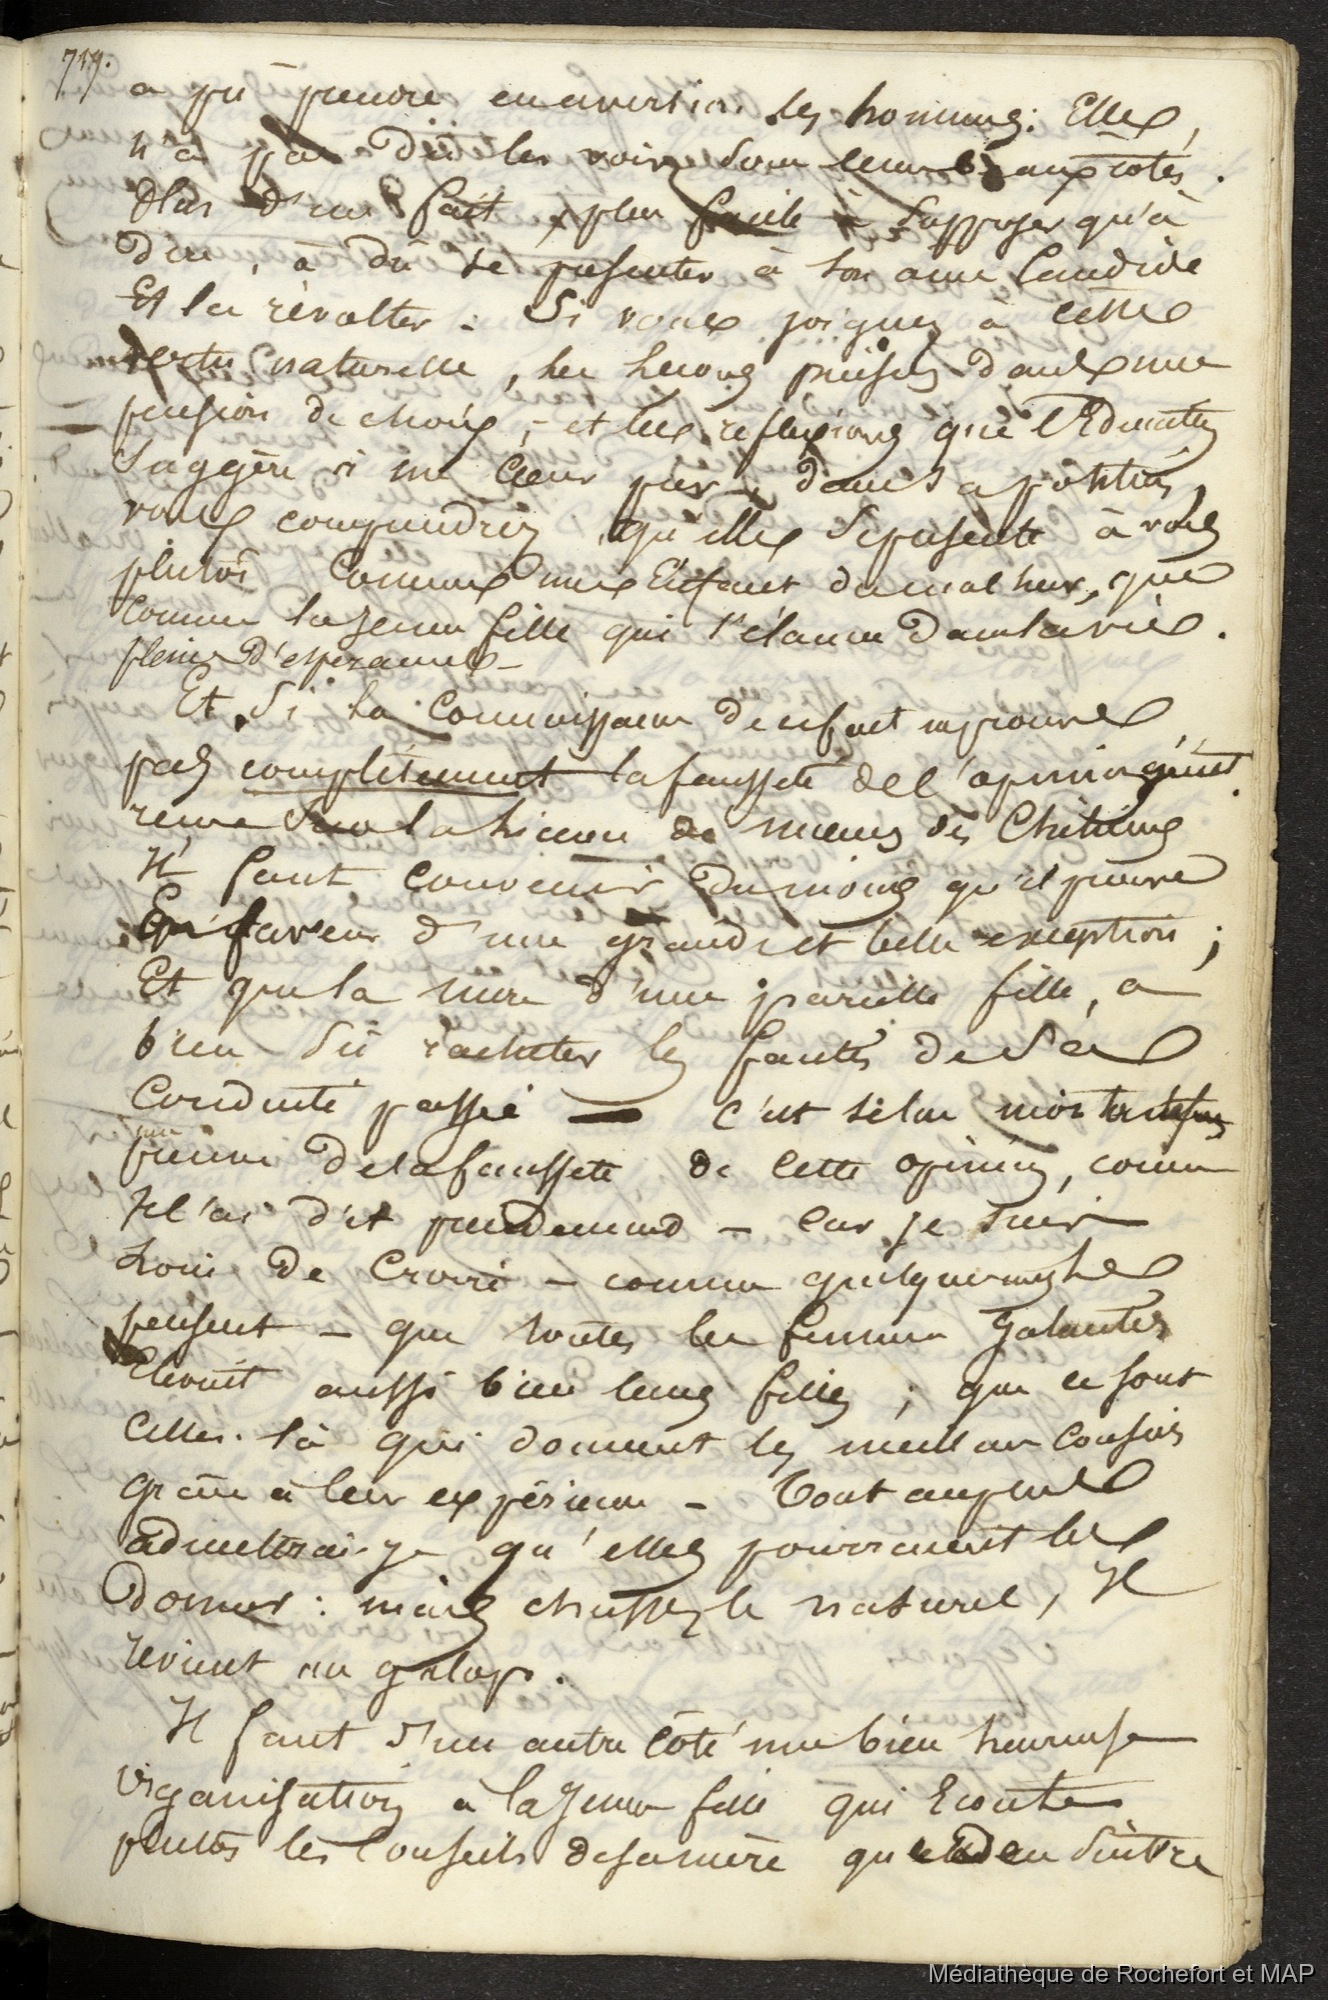 719.
a pu prendre en aversion les hommes : Elle
n'a pas dû les voir sous leurs beaux côtés.
Plus d'un fait, plus facile à supposer qu'à
dire, a dû se présenter à son âme candide
Et la révolter. Si vous joignez à cette
vertu naturelle, les leçons puisées dans une
pension de choix, – et les réflexions que l'Education
suggère à un Cœur pur – dans sa position,
vous comprendrez qu'elle se présente à vous
plutôt comme une Enfant du malheur, que
comme la jeune fille qui s'élance dans la vie
pleine d'espérance –
Et si la Connaissance de ce fait ne prouve
pas complètement la fausseté de l'opinion qui est
venue sur la licence de mœurs des
Il faut convenir du moins qu'il prouve
En faveur d'une grande et belle exception ;
Et que la mère d'une pareille fille, a
bien su racheter les fautes de sa
Conduite passée — C'est selon moi
une
preuve de la fausseté de cette opinion, comme
je l'ai dit précédemment – Car je suis
loin de croire – comme quelques uns le
pensent – que toutes les femmes galantes
Elèvent aussi bien leurs filles ; que ce sont
celles-là qui donnent les meilleurs conseils
grâce à leur expérience – Tout au plus
admettrai-je qu'elles pourraient les
donner : mais chassez le naturel, Il
revient au galop.
Il faut d'un autre côté une bien heureuse
organisation à la jeune fille qui Ecoute
plutôt les Conseils de sa mère que de suivre